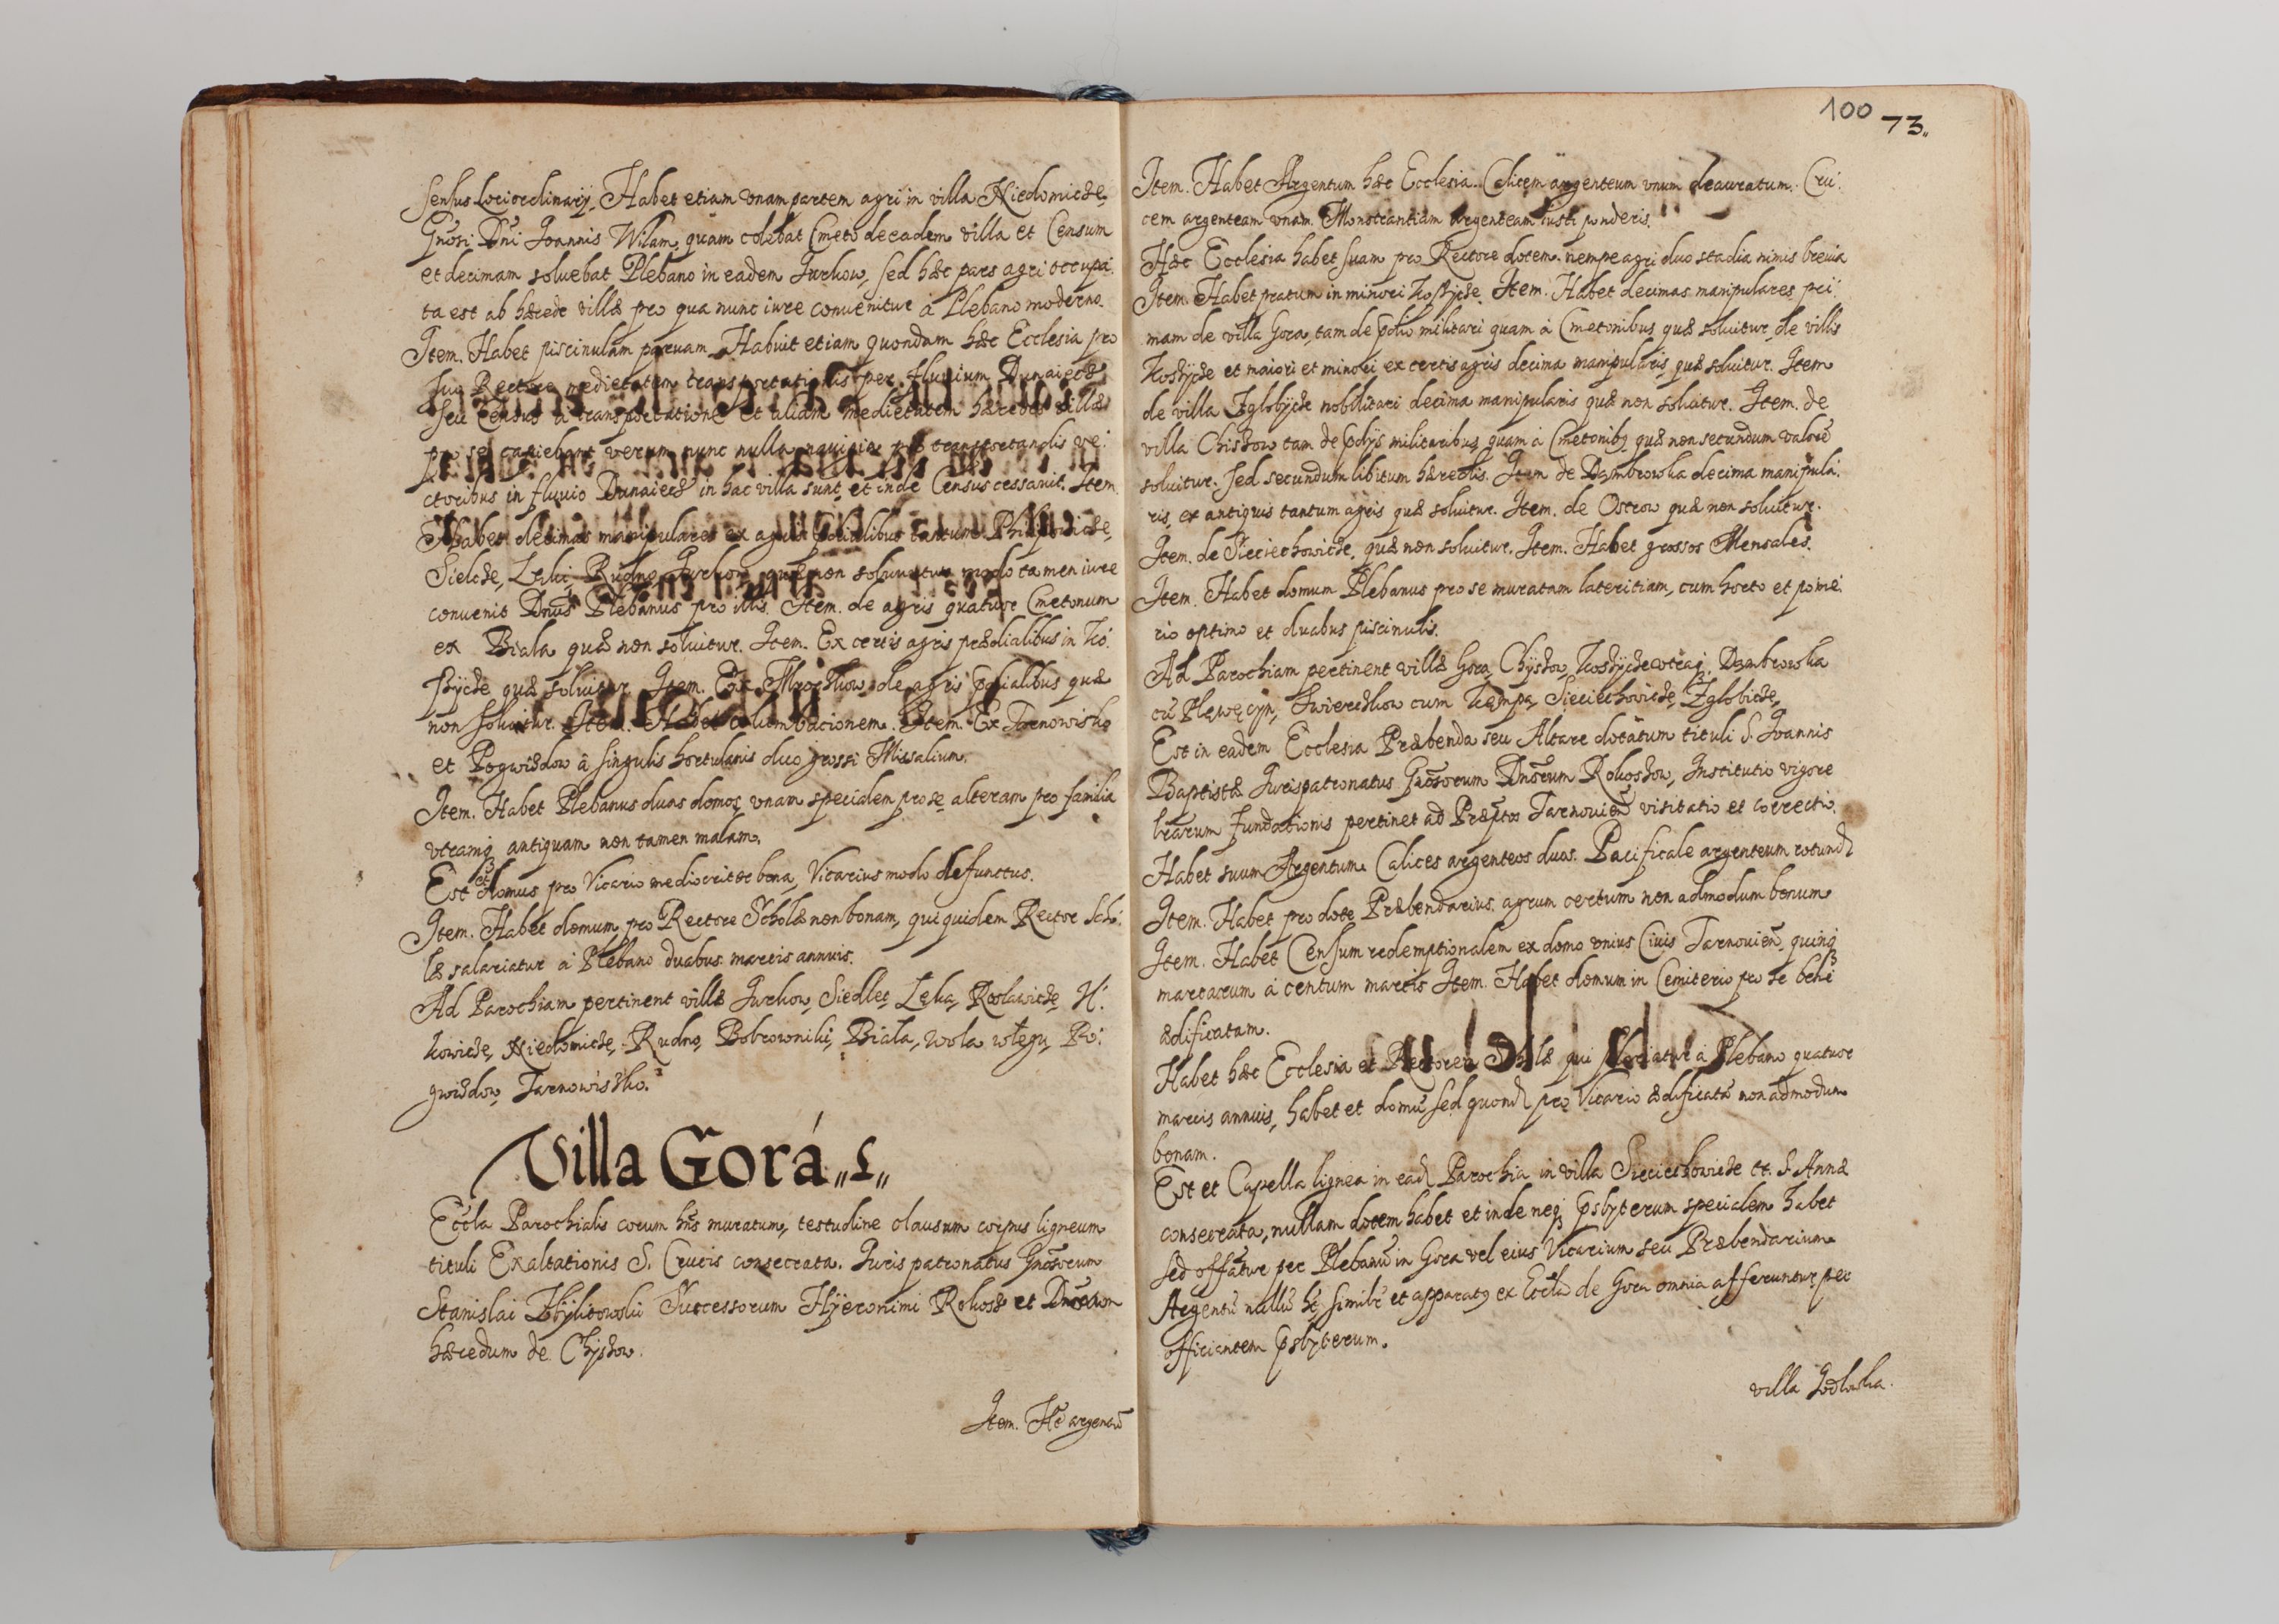 sensus Loci ordinarij. Habet etiam vnam partem agri in villa Niedomicze
Gnosi Dni Joannis Wilam, quam colebat Cmeto de eadem villa et Censum
et decimam soluebat Plebano in eadem Jurkow, sed hæc pars agri occupa:
ta est ab hærede villæ pro qua nunc iure conuenitur à Plebano moderno.
Item. Habet piscinulam paruam. Habuit etiam quondam hæc Ecclesia pro
suo Rectore medietatem transportationis per fluuium Dunaiecz
seu Census à transportatione et aliam medietatem hæredes villæ
pro se capiebant verum nunc nulla nauigia pro transportandis ve:
ctoribus in fluuio Dunaiecz in hac villa sunt, et inde Census cessauit. Item
Habet decimas manipulares ex agris prædialibus tantum Philipowicze,
Sielcze, Lęki, Rudno, Jurkow, quæ non soluuntur modo tamen iure
conuenit Dnus Plebanus pro illis. Item. de agris quatuor Cmetonum
ex Biala quæ non soluitur. Item. Ex certis agris prædialibus in Ko:
szycze quæ soluitur. Item. Ex Mroczkow de agris prædialibus quæ
non soluitur. Item. Habet columbacionem. Item. Ex Tarnowisko
et Pogwizdow à singulis hortulanis duo grossi Missalium.
Item. Habet Plebanus duas domos vnam specialem pro se alteram pro familia
vtramq antiquam non tamen malam.
Est et domus pro Vicario mediocriter bona, Vicarius modo defunctus.
Item. Habet domum pro Rectore Scholæ non bonam, qui quidem Rector Scho:
læ salariatur à Plebano duabus marcis annuis.
Ad Parochiam pertinent villæ Jurkow, Siedlec, Lęka, Roslawicze, H:
kowicze, Niedomicze, Rudno, Bobrowniki, Biala, Wola Po:
gwizdow, Tarnowisko.
Villa Gorá „L„
Eccla Parochialis corum hns muratum, testudine clausum corpus ligneum
tituli Exaltationis S. Crucis consecrata. Juris patronatus Gnosorum
Stanislai Zbylitowski Successorum Hyeronimi Rokosz et Dnorum
hæredum de Chyszow.
Item. Ht argentū
100 73.
Item. Habet Argentum hæc Ecclesia. Calicem argenteum vnum deauratum. Cru:
cem argenteam vnam. Monstrantiam argenteam iusti ponderis.
Hæc Ecclesia habet suam pro Rectore dotem. nempe agri duo stadia nimis breuia
Item. Habet pratum in minori Koszycze. Item. Habet decimas manipulares pri:
mam de villa Gora, tam de prædio militari quam à Cmetonibus quæ soluitur, de villis
Koszycze et maiori et minori ex certis agris decima manipularis quæ soluitur. Item
de villa Zglobycze nobilitari decima manipularis quæ non soluitur. Item. de
villa Chiszow tam de prædijs militaribus, quam à Cmetonibq quæ non secundum valorē
soluitur. sed secundum libitum hæredis. Item de Dąmbrowka decima manipula:
ris, ex antiquis tantum agris quæ soluitur. Item. de Ostrow quæ non soluitur.
Item. de Sieciechowicze, quæ non soluitur. Item. Habet grossos Mensales.
Item. Habet domum Plebanus pro se muratam lateritiam, cum horto et pome:
rio optimo et duabus piscinulis.
Ad Parochiam pertinent villæ Gora, Chyszow, Koszycze vtraq, Dąmbrowka
cū Plewęcyn, Swierczkow cum Kempa, Sieciechowicze, Zglobicze,
Est in eadem Ecclesia Præbenda seu Altare dotatum tituli S. Joannis
Baptistæ Jurispatronatus Gnosorum Dnorum Rokoszow, Institutio vigore
lrarum Fundationis pertinet ad Præptos Tarnouien visitatio et correctio.
Habet suum Argentum. Calices argenteos duos. Pacificale argenteum rotund
Item. Habet pro dote Præbendarius. agrum certum non admodum bonum
Item. Habet Censum redemptionalem ex domo vnius Ciuis Tarnouien, quinq
marcarum à centum marcis. Item. Habet domum in Cemiterio pro se bene
ædificatam.
Habet hæc Ecclesia et Rectorem Scholæ qui salariatur à Plebano quatuor
marcis annuis, habet et domū sed quond pro Vicario ædificatā non admodum
bonam.
Est et Capella lignea in ead Parochia in villa Sieciechowicze tt. S. Annæ
consecrata, nullam dotem habet et inde neq prsbyterum specialem habet
sed offātur per Plebanū in Gora vel eius Vicarium seu Præbendarium.
Argentū nullū ht, simile et apparatq ex Eccla de Gora omnia afferuntur per
officiantem prsbyterum.
villa Jodlowka.